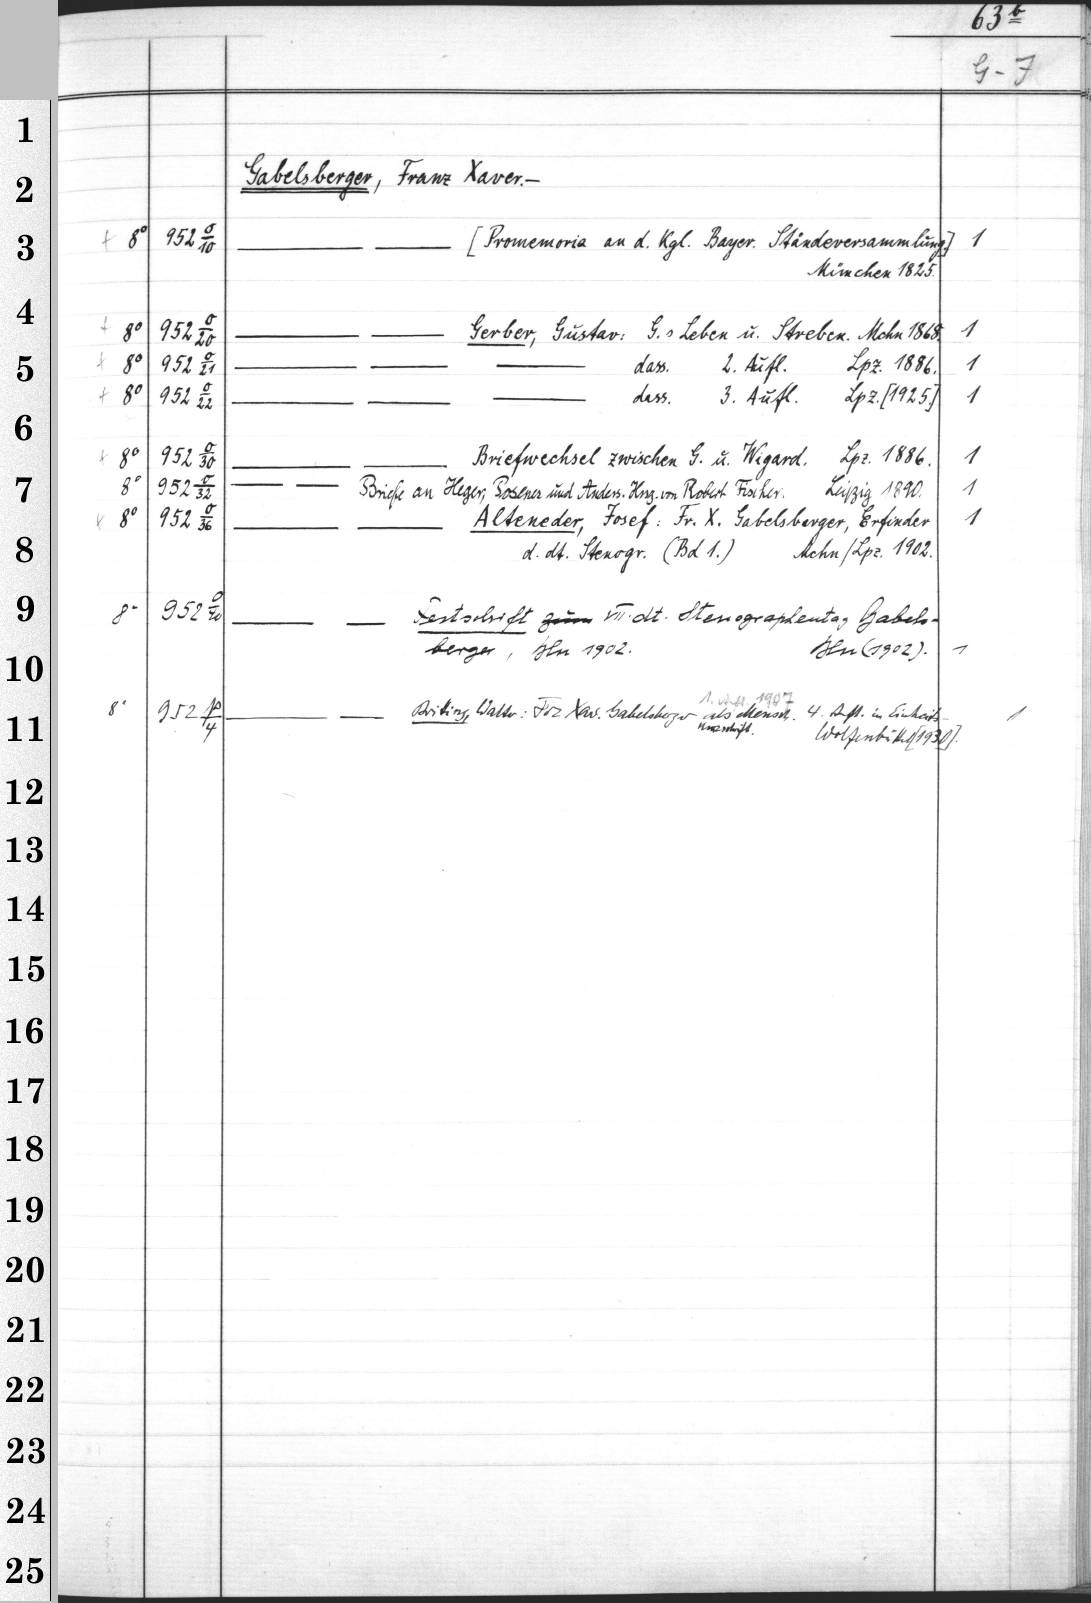 63 b
G - J
Gabelsberger, Franz Xaver.—
+ 8° 952 σ/10 — — [Promemoria an d. Kgl. Bayer. Ständeversammlung.] 1
München 1825.
+ 8° 952 σ/20 — — Gerber, Gustav: G.s Leben u. Streben. Mchn 1868. 1
+ 8° 952 σ/21 — — — dass. 2. Aufl. Lpz. 1886. 1
+ 8° 952 σ/22 — — — dass. 3. Aufl. Lpz. [1925.] 1
+ 8° 952 σ/30 — — Briefwechsel zwischen G. u. Wigard. Lpz. 1886. 1
8° 952 σ/32 — — Briefe an Heger, Posener und Anders. Hrsg. von Robert Fischer. Leipzig 1890. 1
+ 8° 952 σ/36 — — Alteneder, Josef: Fr. X. Gabelsberger, Erfinder 1
d. dt. Stenogr. (Bd 1.) Mchn/Lpz. 1902.
8° 952 σ/40 — — Festschrift zum VII. dt. Stenographentag Gabels-
berger, Bln 1902. Bln (1902). 1
1. Aufl. 1907
8° 952 /4 — — Walter: Frz Xav. Gabelsberger als Mensch. 4. Aufl. in Einheits- 1
kurzschrift. Wolfenbüttel [1930].
1
2
3
4
5
6
7
8
9
10
11
12
13
14
15
16
17
18
19
20
21
22
23
24
25